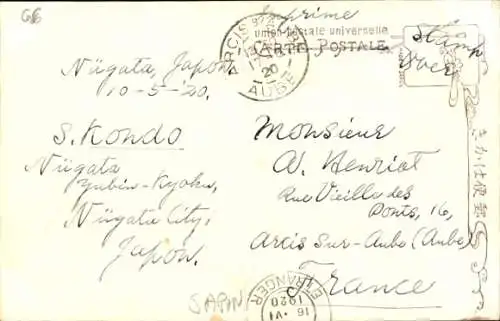 G6
Imprime
union postale universelle
CARTE POSTALE
Stamp
over
ARCIS
AUBE
20
Niigata, Japon
10-5-20.
S. Kondo
Niigata
Yubin-Kyoku,
Niigata City,
Japon.
Monsieur
A. Henriot
Rue Vieille des
Ponts, 16,
Arcis Sur-Aube (Aube)
France
ETRANGER
16 VI
1920
きか仕便郵